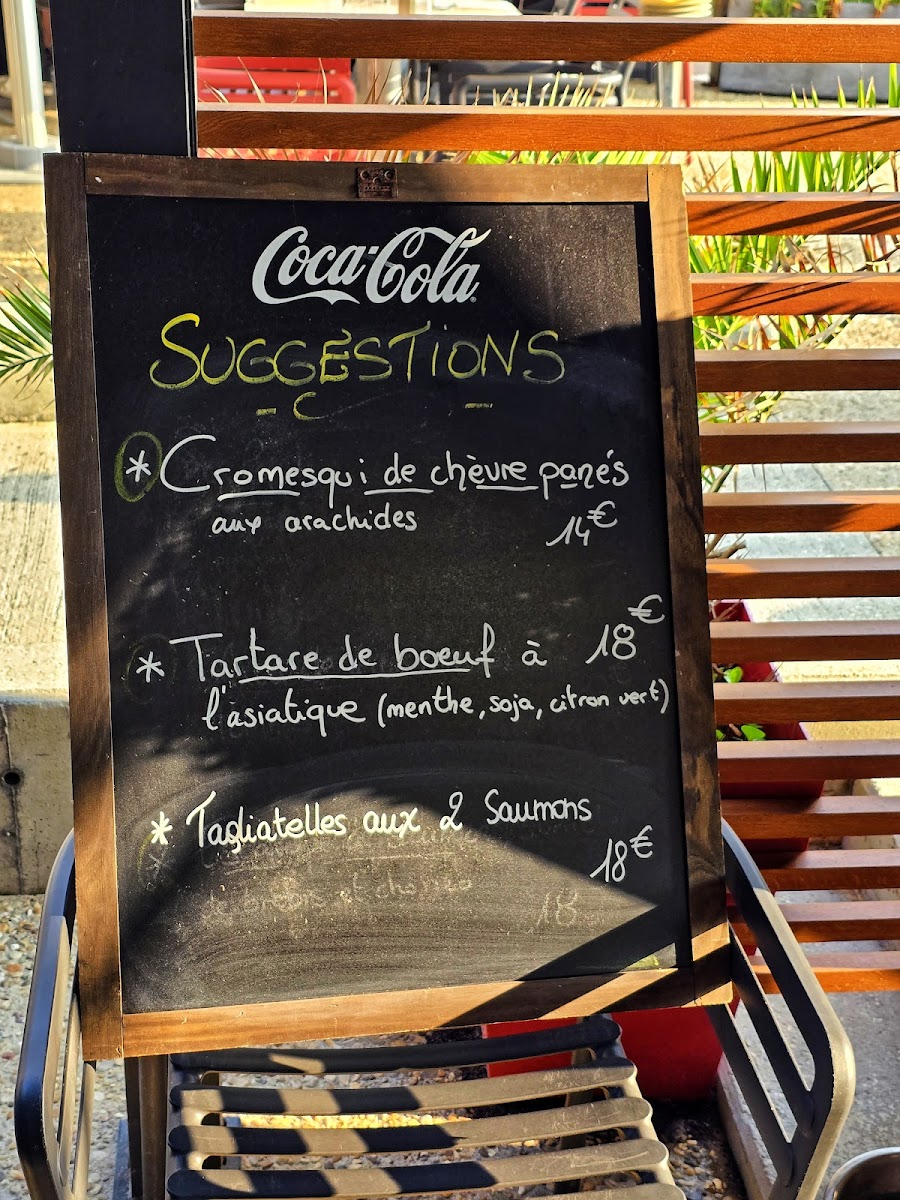 Coca-Cola
SUGGESTIONS
* Cromesqui de chèvre panés
aux arachides 14€
* Tartare de boeuf à 18€
l'asiatique (menthe, soja, citron vert)
* Tagliatelles aux 2 Saumons
18€
et chorizo
18